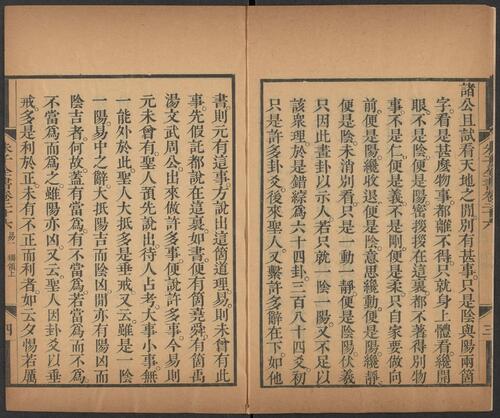 諸公且試看天地之閒別有甚事只是陰與陽兩箇
字看是甚麼物事都離不得只就身上體看纔開
眼不是陰便是陽密拶拶在這裏都不著得別物
事不是仁便是義不是剛便是柔只自家要做向
前便是陽纔收退便是陰意思纔動便是陽纔靜
便是陰未消別看只是一動一靜便是陰陽伏羲
只因此畫卦以示人若只就一陰一陽又不足以
該衆理於是錯綜爲六十四卦三百八十四爻初
只是許多卦爻後來聖人又繫許多辭在下如他
書則元有這事方說出這箇道理易則未曾有此
事先假託都說在這裏如書便有箇堯舜有箇禹
湯文武周公出來做許多事便說許多事今易則
元未曾有聖人預先說出待人占考大事小事無
一能外於此聖人大抵多是垂戒又云雖是一陰
一陽易中之辭大抵陽吉而陰凶閒亦有陽凶而
陰吉者何故蓋有當爲有不當爲若當爲而不爲
不當爲而爲之雖陽亦凶又云聖人因卦爻以垂
戒多是利於正未有不正而利者如云夕惕若厲
朱子全書卷二十六 易一 綱領上
三
四